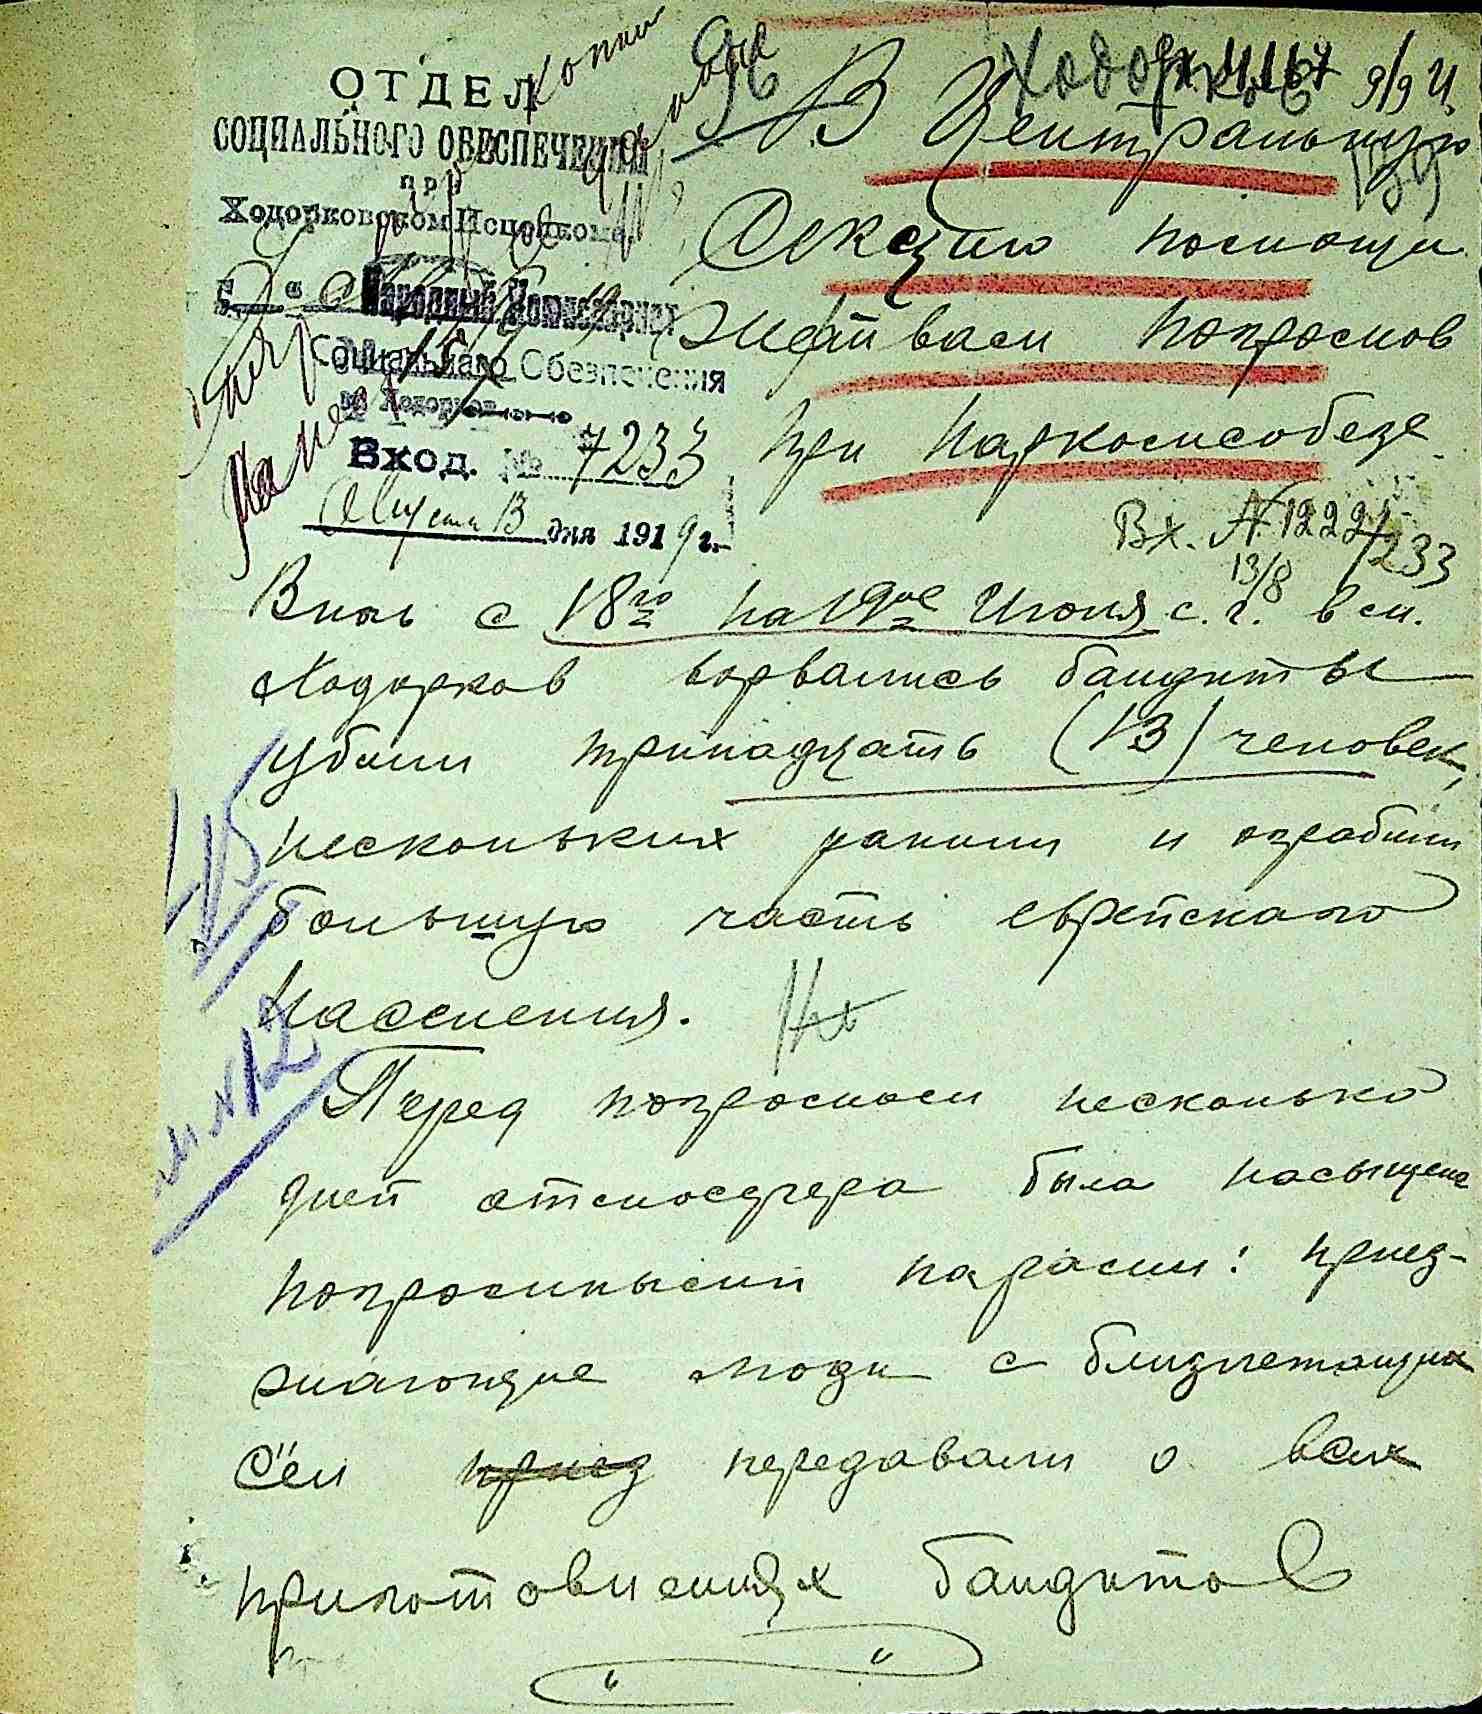 ОТДЕЛ
СОЦИАЛЬНОГО ОБЕСПЕЧЕНИЯ
при
Ходорковском Исполкоме
Народный Комиссариат
Социальнаго Обезпечения
Вход. № 7233
Августа 13 дня 1919 г.
96
Ходорков
9/9
139
В Центральную
Секцию помощи
жертвам погромов
при Наркомсобезе
Вх. № 12221
7233
13/8
В ночь с 18го на 19ое Июня с. г. в м.
Ходорков ворвались бандиты
убили тринадцать (13) человек,
нескольких ранили и ограбили
большую часть еврейского
населения.
Перед погромом несколько
дней атмосфера была насыщена
погромными парами: приез-
жающие люди с близлежащих
сел приез передавали о всех
приготовлениях бандитов